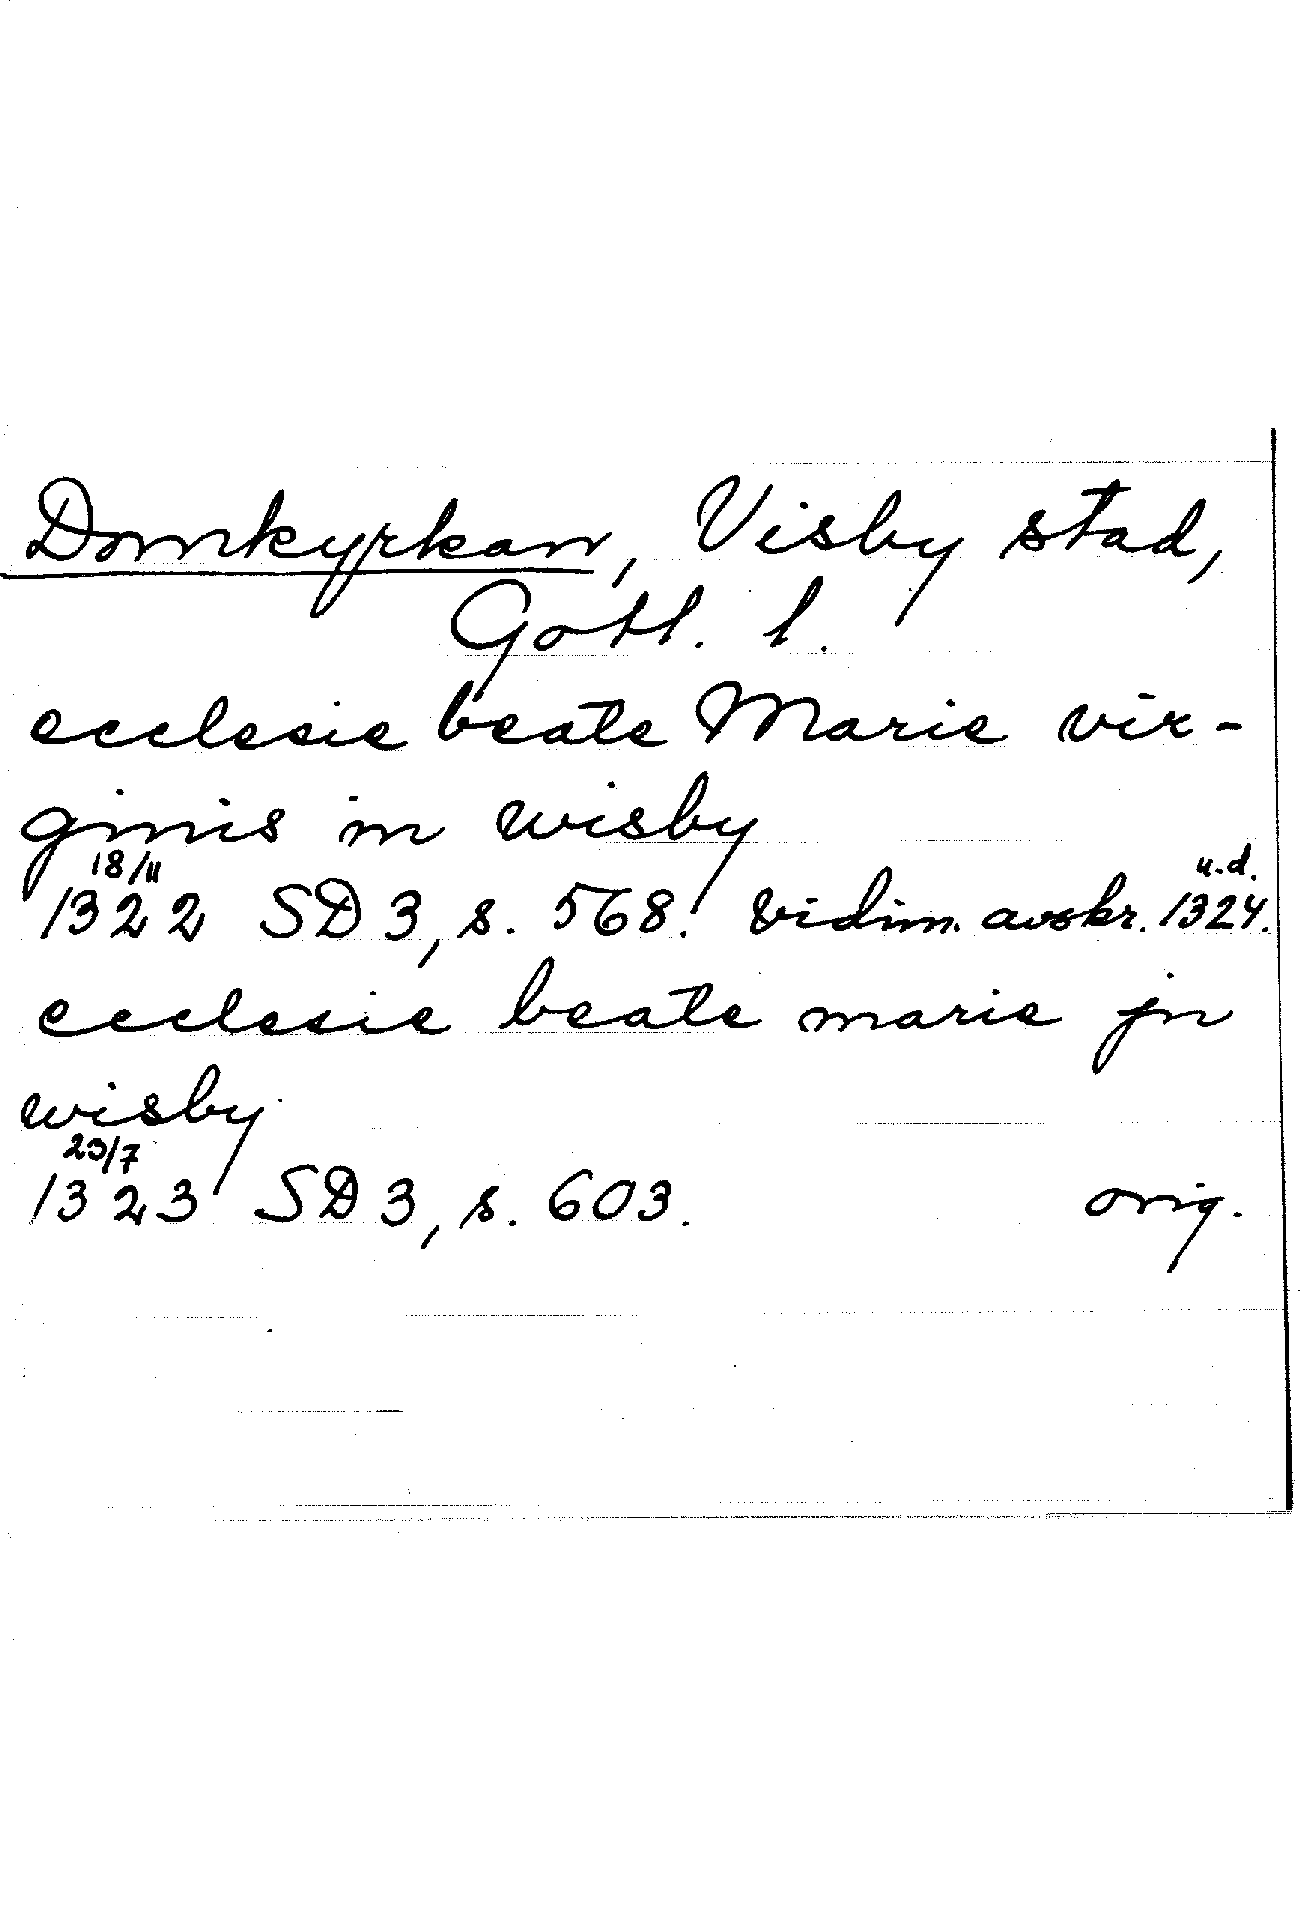 Domkyrkan, Visby stad,
Gotl. l.
ecclesie beate Marie vir-
ginis in wisby
18/11 u.d.
1322 SD 3, s. 568. Vidim. avskr. 1324.
ecclesie beate marie jn
wisby
23/7
1323 SD 3, s. 603. orig.